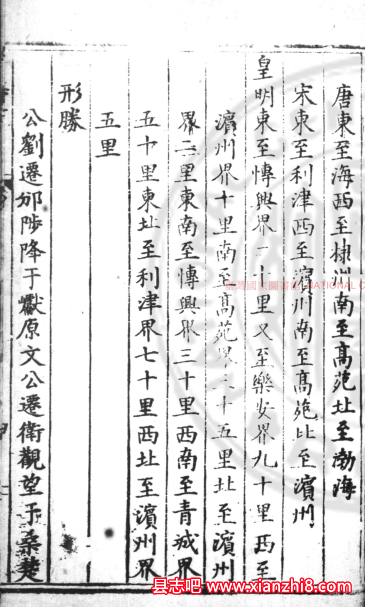 唐東至海西至棣州南至高苑北至渤海
宋東至利津西至濵州南至高苑北至濵州
皇明東至愽興界二十里又至樂安界九十里西至
濵州界十里南至高苑界二十五里北至濵州
界二里東南至愽興界三十里西南至青城界
五十里東北至利津界七十里西北至濵州界
五里
形勝
公劉遷邠陟降于巘原文公遷衛觀望于桑楚
县志吧 www.xianzhi8.com